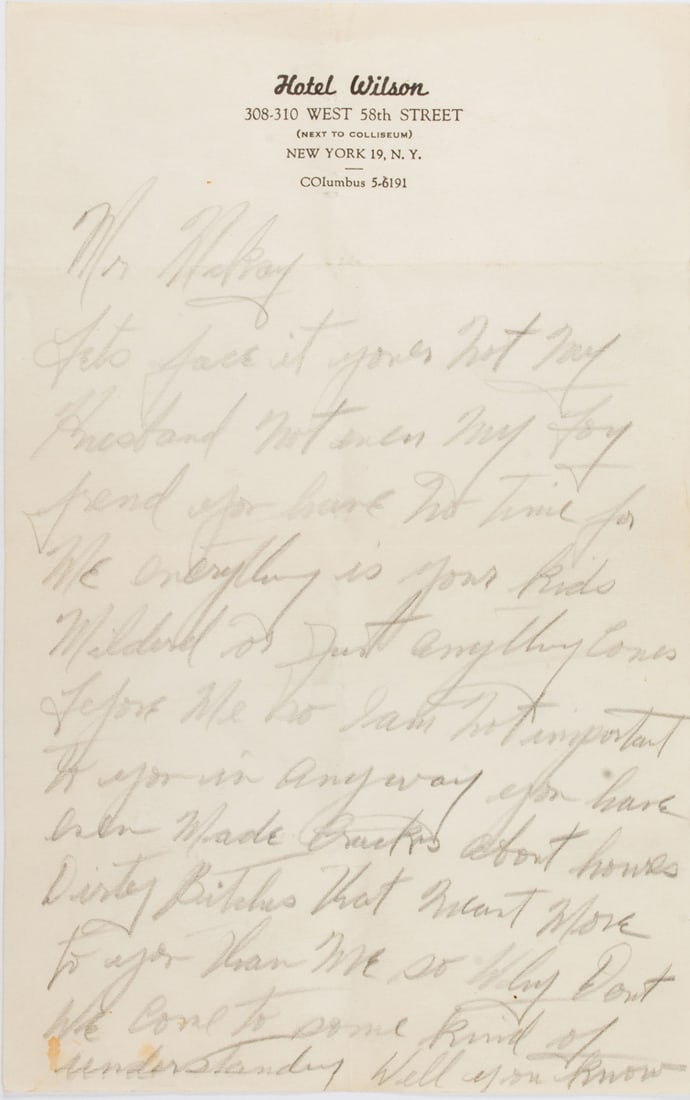 Hotel Wilson
308-310 WEST 58th STREET
(NEXT TO COLLISEUM)
NEW YORK 19, N. Y.
COlumbus 5-6191
Mr McKay
Lets face it your Not My
Husband Not even My Boy
frend you have No Time for
Me everything is your kids
Mildred or Just anything Comes
before Me no I am Not important
to you in anyway you have
even Made Cracks about
Dirty Bitches that meant More
to you than Me so Why Dont
We Come to some kind of
understanding Well you know